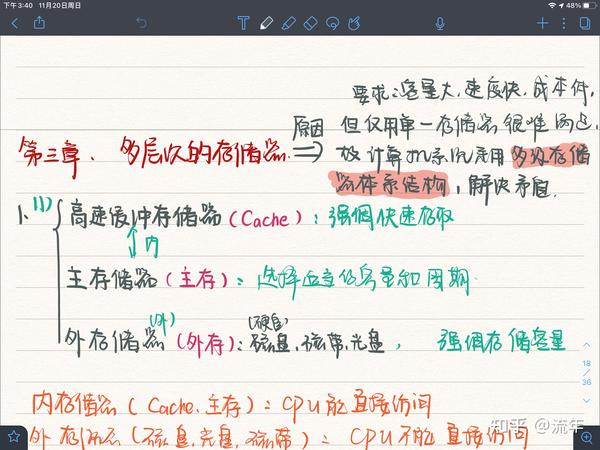 下午3:40 11月20日周日
48%
要求:容量大,速度快,成本低,
原因 但仅用单一存储器很难满足,
第三章、多层次的存储器 ⇒ 故计算机系统采用多级存储
器体系结构,解决矛盾.
1、(1) 高速缓冲存储器(Cache):强调快速存取
内
主存储器(主存):选择适当的容量和周期.
(外) (硬盘)
外存储器(外存):磁盘、磁带、光盘, 强调存储容量
18
36
内存储器(Cache、主存):CPU能直接访问
外存储器(磁盘,光盘,磁带):CPU不能直接访问
知乎 @流年